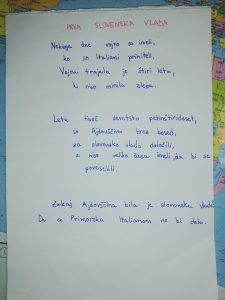 PRVA SLOVENSKA VLADA
Nekega dne vojno so imeli,
ko so Italiani prihiteli,
Vojna trajala je štiri leta,
ki niso minila zlepa.
Leta tisoč devetsto petinštirideset,
so Ajdovščino brez besed,
za slovensko vlado določili,
a niso veliko časa imeli, da bi se
poveselili.
Zakaj Ajdovščina bila je slovenska vlada
Da se Primorska Italianom ne bi dala.